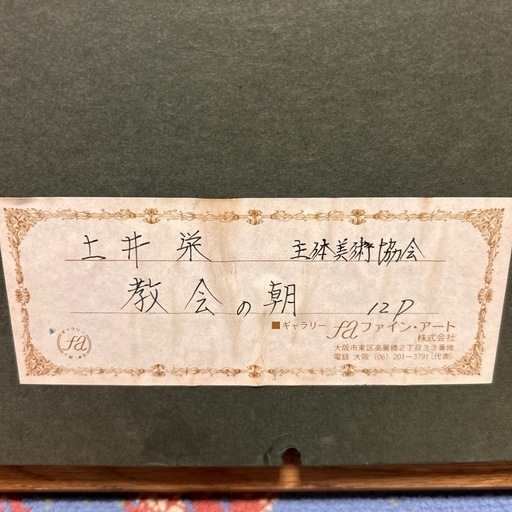 土井栄 主体美術協会
教会の朝 12P
■ギャラリー fa ファイン・アート
株式会社
大阪市東区高麗橋2丁目33番地
電話 大阪 (06) 201-3791 (代表)
fa